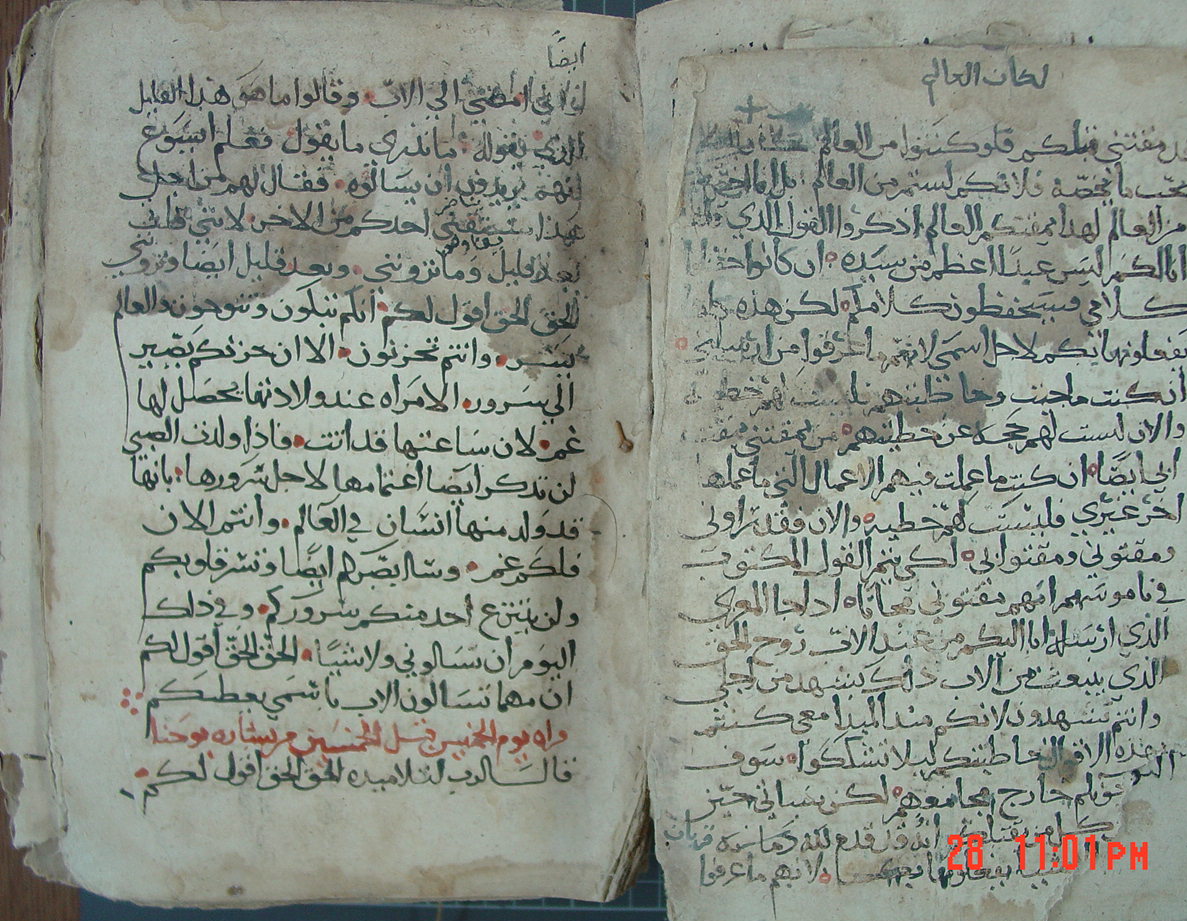 لكان العالم
مقتني قبلكم فلو كنتم من العالم
يحب ما يخصه فلانكم لستم من العالم بل انا
من العالم لهذا يمقتكم العالم اذكروا القول الذي
انا لكم ليس عبدًا اعظم من سيده ان كانوا حفظوا
كلامي فسيحفظون كلامكم لكن هذه
يفعلونها بكم لاجل اسمي لانهم ما عرفوا من ارسلني
ان كنت ما جيت وخاطبتهم
والان ليست لهم حجة عن خطيتهم من يمقتني يمقت
ابي ايضًا ان كنت ما عملت فيهم الاعمال التي ما عملها
اخر غيري فليست لهم خطية والان فقد راوني
ومقتوني ومقتوا ابي لكي يتم القول المكتوب
في ناموسهم انهم مقتوني مجانًا اذا جا المعزي
الذي ارسله انا اليكم من عند الاب روح الحق
الذي ينبعث من الاب ذاك يشهد من اجلي
وانتم تشهدون لانكم منذ المبدا معي كنتم
بهذه الاقوال خاطبتكم ليلا تشككوا سوف
خارج مجامعهم لكن سياتي حين
كل من يقتلكم انه قد قدم لله
لانهم ما عرفوا
ايضًا
امضي الي الاب وقالوا ما هو هذا القليل
الذي يقوله ما ندري ما يقول فعلم ايسوع
انهم يريدون ان يسالوه فقال لهم من اجل
هذا احدكم من الاخر لانني قلت
بعد قليل وما ترونني وبعد قليل ايضًا وتروني
الحق الحق اقول لكم انكم تبكون وتنوحون والعالم
يسر وانتم تحزنون الا ان حزنكم يصير
الي سرور الامراه عند ولادتها يحصل لها
غم لان ساعتها قد اتت فاذا ولدت الصبي
لن تذكر ايضًا اغتمامها لاجل سرورها بانها
قد ولد منها انسان في العالم وانتم الان
فلكم غم وسابصركم ايضًا وتسر قلوبكم
ولن ينتزع احد منكم سروركم وفي ذلك
اليوم لن تسالوني ولا شيًا الحق الحق اقول لكم
ان مهما تسالون الاب باسمي يعطيكم
قراه يوم الخميس قبل الخمسين من بشاره يوحنا
قال الرب لتلاميذه الحق الحق اقول لكم
28 11:01 PM